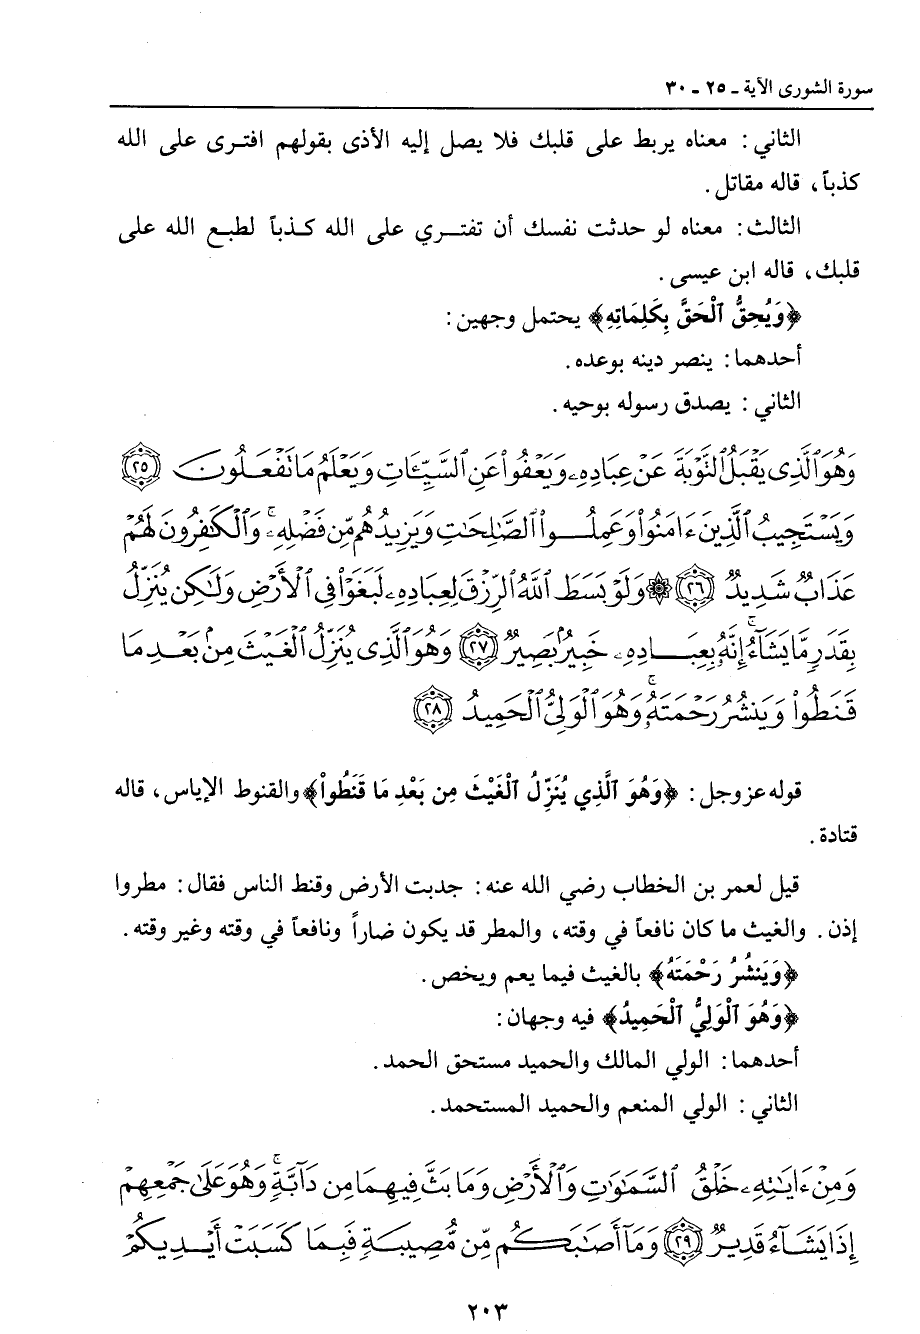 سورة الشورى الآية ـ ٢٥ ـ ٣٠
الثاني: معناه يربط على قلبك فلا يصل إليه الأذى بقولهم افترى على الله
كذباً، قاله مقاتل.
الثالث: معناه لو حدثت نفسك أن تفتري على الله كذباً لطبع الله على
قلبك، قاله ابن عيسى.
﴿وَيُحِقُّ ٱلْحَقَّ بِكَلِمَاتِهِ﴾ يحتمل وجهين:
أحدهما: ينصر دينه بوعده.
الثاني: يصدق رسوله بوحيه.
وَهُوَ ٱلَّذِى يَقْبَلُ ٱلتَّوْبَةَ عَنْ عِبَادِهِۦ وَيَعْفُوا۟ عَنِ ٱلسَّيِّـَٔاتِ وَيَعْلَمُ مَا تَفْعَلُونَ ٢٥
وَيَسْتَجِيبُ ٱلَّذِينَ ءَامَنُوا۟ وَعَمِلُوا۟ ٱلصَّـٰلِحَـٰتِ وَيَزِيدُهُم مِّن فَضْلِهِۦ ۚ وَٱلْكَـٰفِرُونَ لَهُمْ
عَذَابٌ شَدِيدٌ ٢٦ ۞ وَلَوْ بَسَطَ ٱللَّهُ ٱلرِّزْقَ لِعِبَادِهِۦ لَبَغَوْا۟ فِى ٱلْأَرْضِ وَلَـٰكِن يُنَزِّلُ
بِقَدَرٍ مَّا يَشَآءُ ۚ إِنَّهُۥ بِعِبَادِهِۦ خَبِيرٌۢ بَصِيرٌ ٢٧ وَهُوَ ٱلَّذِى يُنَزِّلُ ٱلْغَيْثَ مِنۢ بَعْدِ مَا
قَنَطُوا۟ وَيَنشُرُ رَحْمَتَهُۥ ۚ وَهُوَ ٱلْوَلِىُّ ٱلْحَمِيدُ ٢٨
قوله عز وجل: ﴿وَهُوَ ٱلَّذِي يُنَزِّلُ ٱلْغَيْثَ مِن بَعْدِ مَا قَنَطُواْ﴾ والقنوط الإياس، قاله
قتادة.
قيل لعمر بن الخطاب رضي الله عنه: جدبت الأرض وقنط الناس فقال: مطروا
إذن. والغيث ما كان نافعاً في وقته، والمطر قد يكون ضاراً ونافعاً في وقته وغير وقته.
﴿وَيَنشُرُ رَحْمَتَهُ﴾ بالغيث فيما يعم ويخص.
﴿وَهُوَ ٱلْوَلِيُّ ٱلْحَمِيدُ﴾ فيه وجهان:
أحدهما: الولي المالك والحميد مستحق الحمد.
الثاني: الولي المنعم والحميد المستحمد.
وَمِنْ ءَايَـٰتِهِۦ خَلْقُ ٱلسَّمَـٰوَٰتِ وَٱلْأَرْضِ وَمَا بَثَّ فِيهِمَا مِن دَآبَّةٍ ۚ وَهُوَ عَلَىٰ جَمْعِهِمْ
إِذَا يَشَآءُ قَدِيرٌ ٢٩ وَمَآ أَصَـٰبَكُم مِّن مُّصِيبَةٍ فَبِمَا كَسَبَتْ أَيْدِيكُمْ
٢٠٣